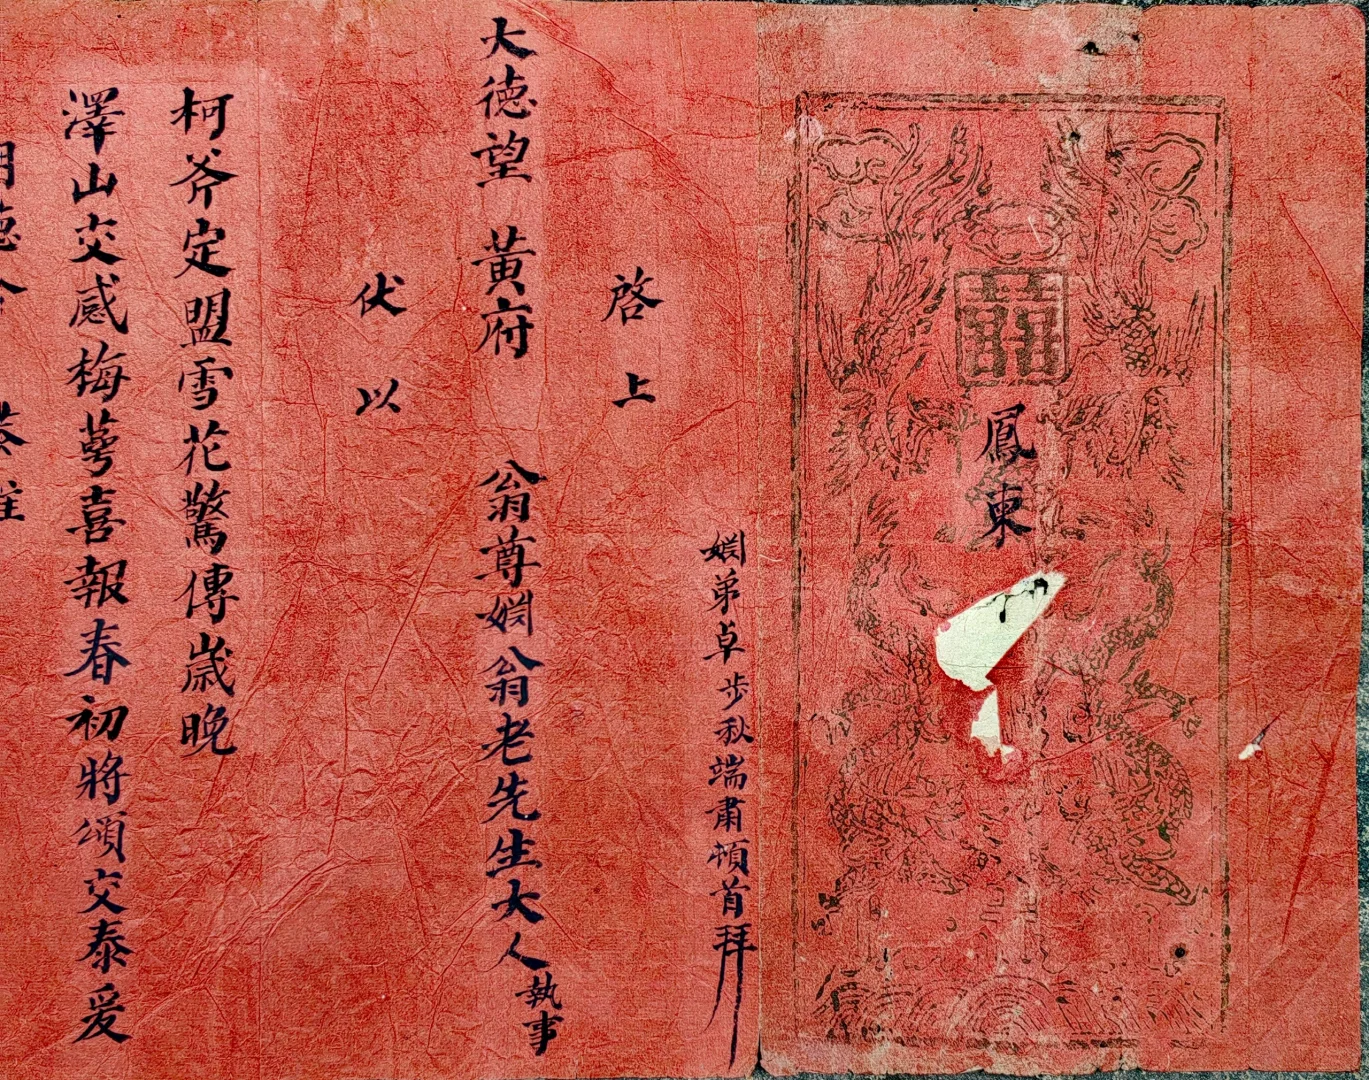 囍
鳳東
姻弟卓步秋端肅頓首拜
啓上
大德望 黃府 翁尊姻翁老先生大人執事
伏以
柯斧定盟雪花驚傳歲晚
澤山交感梅萼喜報春初將頌交泰爰